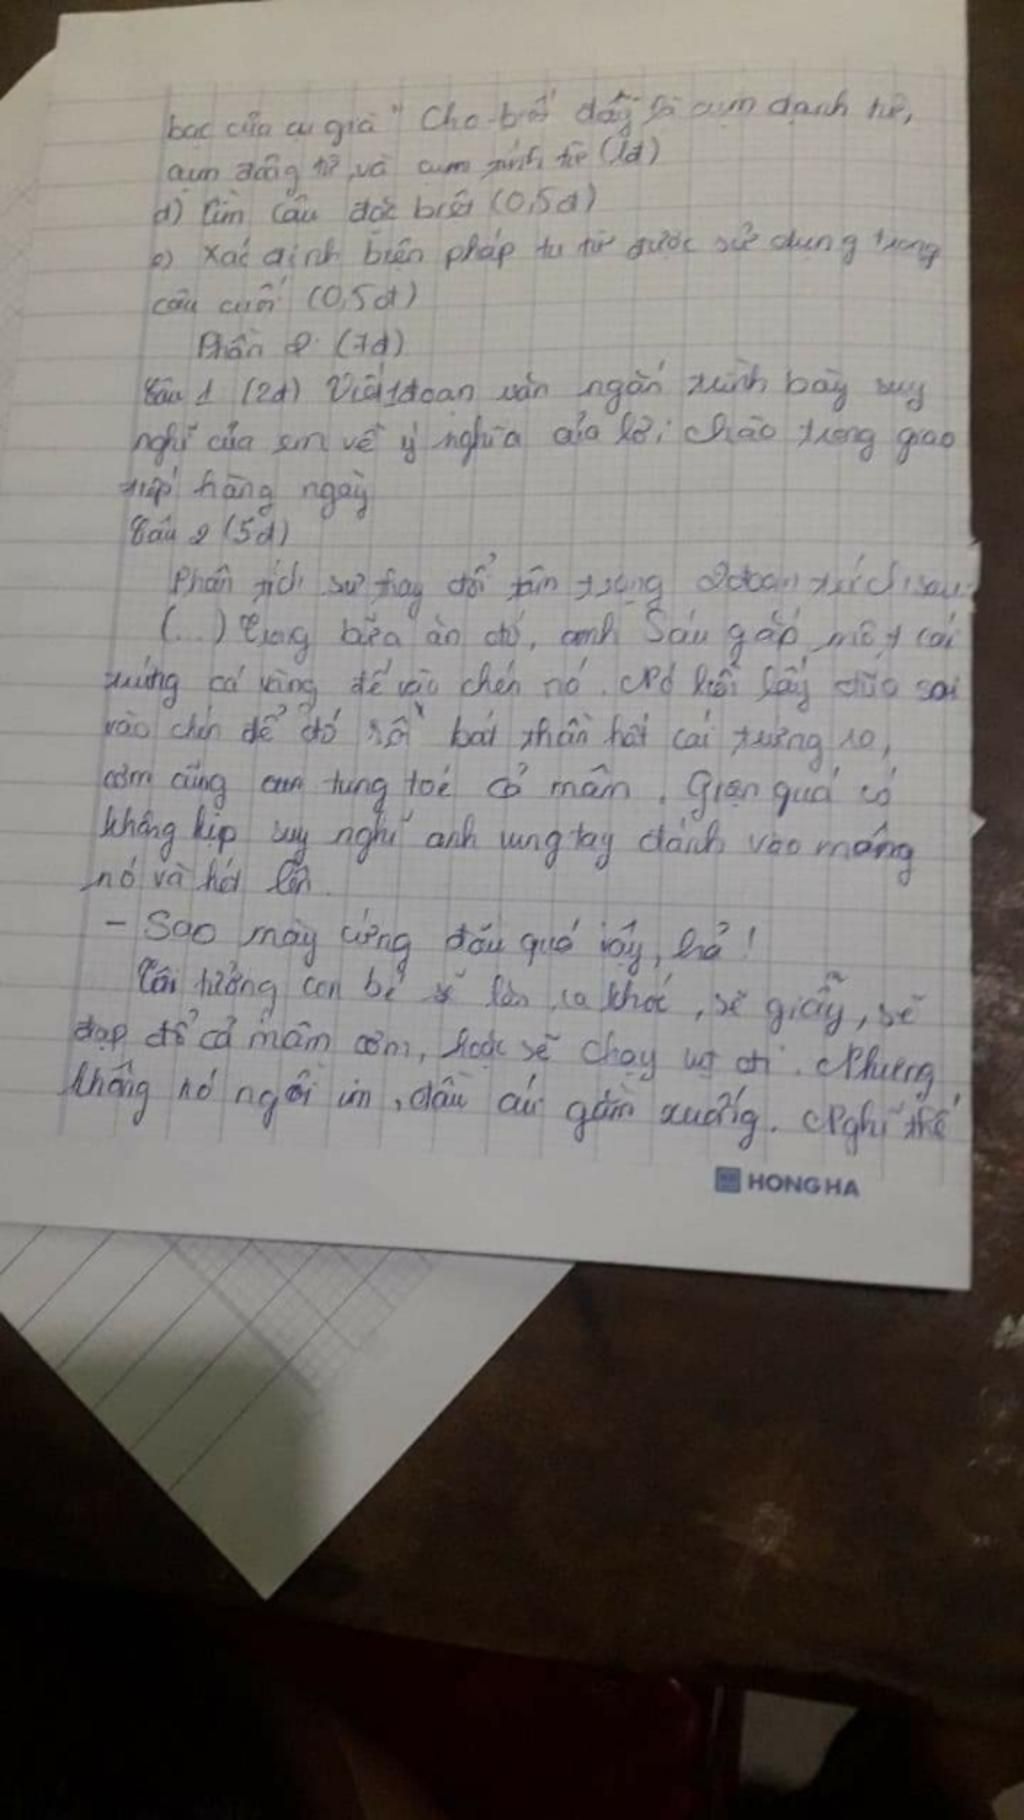 bạc của cụ già" Cho biết đấy là cụm danh từ,
cụm động từ, và cụm tính từ (1đ)
d) Tìm câu đặc biệt (0,5đ)
e) Xác định biện pháp tu từ được sử dụng trong
câu cuối (0,5đ)
Phần 2: (7đ)
Câu 1 (2đ) Viết 1 đoạn văn ngắn trình bày suy
nghĩ của em về ý nghĩa của lời chào trong giao
tiếp hàng ngày
Câu 2 (5đ)
Phân tích sự thay đổi tâm trạng 2 đoạn trích sau:
(...) Trong bữa ăn đó, anh Sáu gắp một cái
trứng cá vàng để vào chén nó. Nó liền lấy đũa soi
vào chén để đó rồi bất thần hất cái trứng ra,
cơm cũng văn tung toé cả mâm. Giận quá có
không kịp suy nghĩ anh vung tay đánh vào mông
nó và hét lên
- Sao mày cứng đầu quá vậy, hả!
Tôi tưởng con bé sẽ lăn ra khóc, sẽ giẫy, sẽ
đạp đổ cả mâm cơm, hoặc sẽ chạy vụt đi. Nhưng
không nó ngồi im, đầu cúi gằm xuống. Nghĩ thế
HONG HA